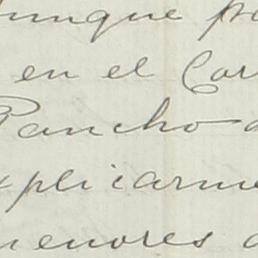 unque p
en el Cor
Pancho
xplicarme
menores